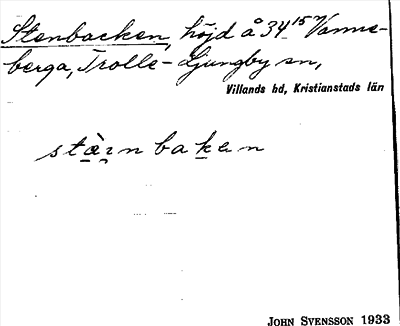 Stenbacken, höjd å 34¹⁵ Vanne-
berga, Trolle-Ljungby sn,
Villands hd, Kristianstads län
JOHN SVENSSON 1933